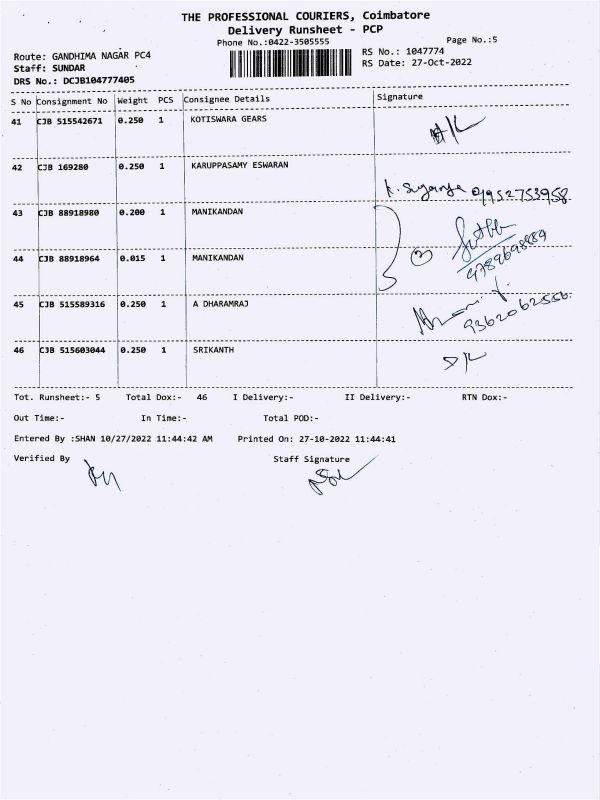 THE PROFESSIONAL COURIERS, Coimbatore
Delivery Runsheet - PCP
Phone No.:0422-3505555
Page No.:5
Route: GANDHIMA NAGAR PC4
RS No.: 1047774
Staff: SUNDAR
RS Date: 27-Oct-2022
DRS No.: DCJB104777405
S No Consignment No Weight PCS Consignee Details Signature
41 CJB 515542671 0.250 1 KOTISWARA GEARS
42 CJB 169280 0.250 1 KARUPPASAMY ESWARAN
43 CJB 88918980 0.200 1 MANIKANDAN
44 CJB 88918964 0.015 1 MANIKANDAN
45 CJB 515589316 0.250 1 A DHARAMRAJ
9362062556
46 CJB 515603044 0.250 1 SRIKANTH
Tot. Runsheet:- 5 Total Dox:- 46 I Delivery:- II Delivery:- RTN Dox:-
Out Time:- In Time:- Total POD:-
Entered By :SHAN 10/27/2022 11:44:42 AM Printed On: 27-10-2022 11:44:41
Verified By Staff Signature